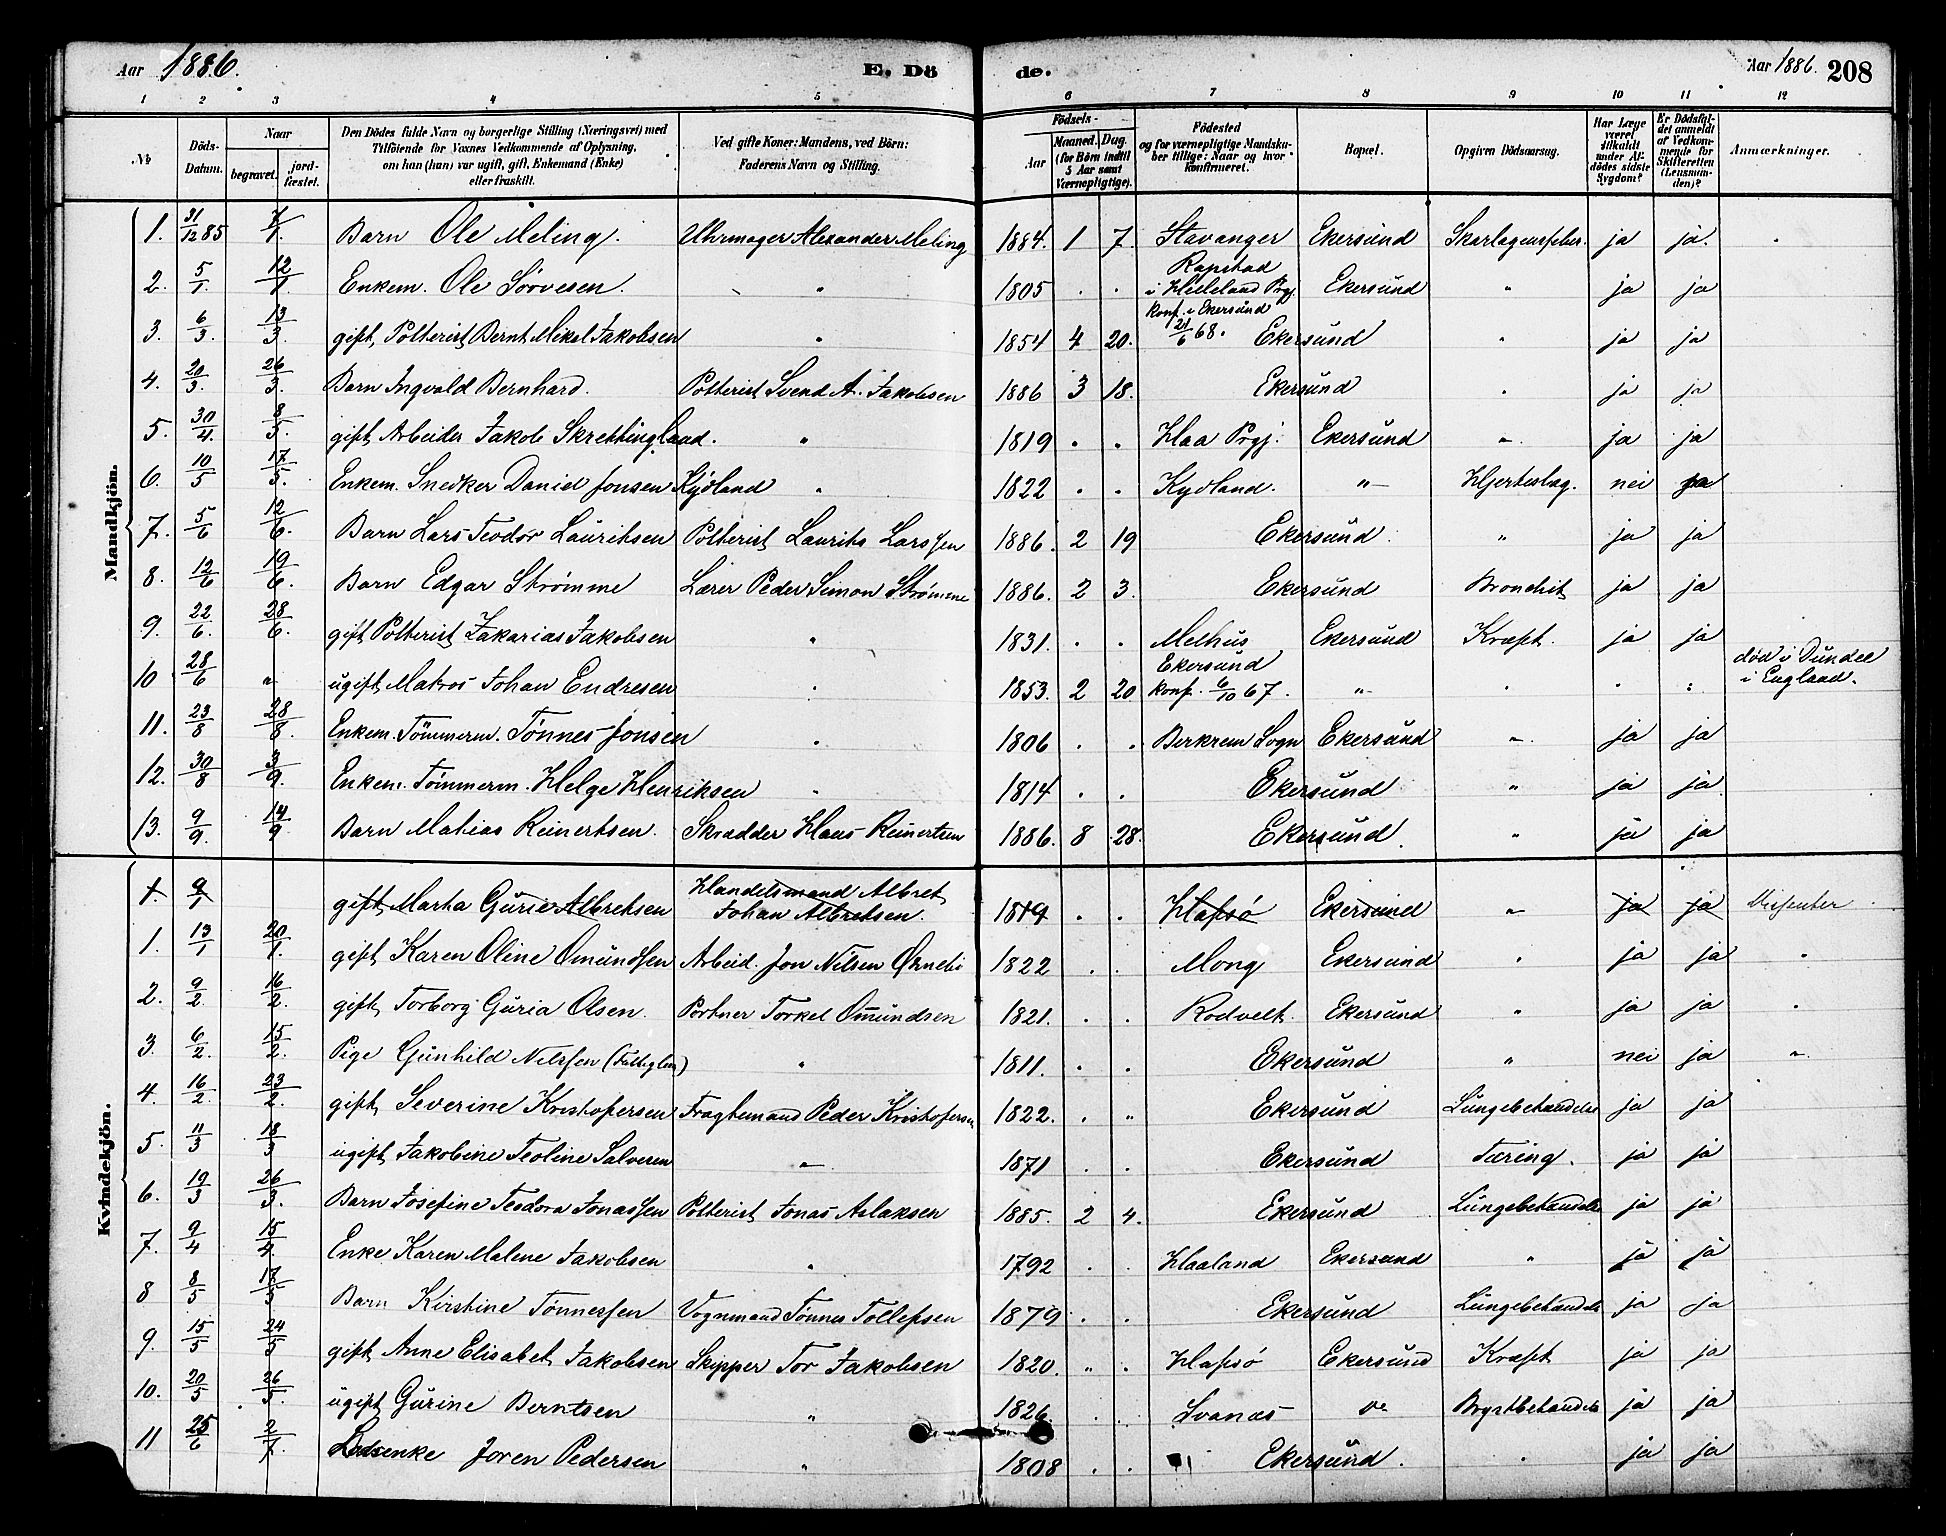 Aar 1886. E. Dö de. Aar 1886. 208
1 2 3 4 5 6 7 8 9 10 11 12
No
Döds-Datum.
Naar
begravet.
jordfæstet.
Den Dödes fulde Navn og borgerlige Stilling (Næringsvei) med
Tilföiende for Voxnes Vedkommende af Oplysning,
om han (hun) var ugift, gift, Enkemand (Enke)
eller fraskilt.
Ved gifte Koner: Mandens, ved Börn:
Faderens Navn og Stilling.
Födsels-
Aar
Maaned. Dag.
(for Börn indtil
5 Aar samt
Værnepligtige).
Födested
og for værnepligtige Mandska-
ber tillige: Naar og hvor
konfirmeret.
Bopæl.
Opgiven Dödsaarsag.
Har Læge
været
tilkaldt
under Af-
dödes sidste
Sygdom?
Er Dödsfal-
det anmeldt
af Vedkom-
mende for
Skifteretten
(Lensman-
den)?
Anmærkninger.
Mandkjön.
1. 31/12 85 7/1. Barn Ole Meling. Uhrmager Alexander Meling 1884. 1 7. Stavanger Ekersund Skarlagensfeber. ja ja.
2. 5/1. 12/1. Enkem. Ole Sörvesen. " 1805 . . Rapstad i Helleland Prgj. Ekersund " ja ja
3. 6/3. 13/3. gift, Potterist Bernt Mikel Jakobsen " 1854 4 20. konf. i Ekersund 21/6 68. Ekersund " ja ja
4. 20/3. 26/3. Barn Ingvald Bernhard. Potterist Svend A. Jakobsen 1886 3 18. Ekersund " ja ja
5. 30/4. 8/5. gift Arbeider Jakob Skrettingland. " 1819 . . Haa Prgj. Ekersund " ja ja
6. 10/5 17/5. Enkem. Snedker Daniel Jonsen Kydland " 1822 . . Kydland. " Hjerteslag. nei ja
7. 5/6 12/6. Barn Lars Teodor Lauritsen Potterist Laurits Larssen 1886. 2 19 Ekersund. " ja ja
8. 12/6 19/6. Barn Edgar Strømme Lærer Peder Simon Strømme 1886. 2 3. Ekersund Bronchit ja ja
9. 22/6. 28/6. gift Potterist Zakarias Jakobsen " 1831. . . Melhus Ekersund Kræft. ja ja
10 28/6 " ugift Matros Johan Endresen " 1853. 2 20 Ekersund konf. 6/10 67. " " . . død i Dundee i England.
11. 23/8 28/8. Enkem. Tömmerm. Tönnes Jonsen " 1806 . . Berkrem Sogn Ekersund " ja ja
12. 30/8 3/9. Enkem. Tömmerm. Helge Henriksen " 1814 . . Ekersund " ja ja
13. 9/9. 14/9 Barn Mathias Reinertsen. Skrædder Hans Reinertsen 1886. 8 28. Ekersund. " ja ja
Kvindekjön.
1. 9/1 gift Marta Gurie Albretsen Handelsmand Albret Johan Albretsen. 1819 . . Hafsø Ekersund " ja ja Dissenter
1. 13/1 20/1. gift Karen Oline Omundsen Arbeid. Jon Nilsen 1822 . . Mong Ekersund " ja ja "
2. 9/2 16/2. gift, Torborg Guria Olsen. Portner Torkel Omundsen 1821. . . Rodvelt. Ekersund " ja ja "
3. 6/2. 15/2. Pige Gunhild Nilssen (Fattiglem) " 1811. . . Ekersund " nei ja "
4. 16/2. 23/2. gift, Severine Kristofersen Fragtemand Peder Kristofersen 1822. . " Ekersund Lungebetændelse ja ja
5. 11/3 18/3 ugift, Jakobine Teoline Salvesen " 1871 . . Ekersund Tæring. ja ja
6. 19/3 26/3. Barn Josefine Teodora Jonassen Potterist Jonas Aslaksen 1885. 2 4. Ekersund Lungebetændelse ja ja
7. 9/4 15/4. Enke Karen Malene Jakobsen " 1792 . . Haaland Ekersund " ja ja
8 8/5 17/5 Barn Kirstine Tönnessen Vognmand Tönnes Tollefsen 1879 . . Ekersund Lungebetændelse ja ja
9. 15/5 24/5 gift, Anne Elisabet Jakobsen Skipper Tor Jakobsen 1820. " . Hafsø Ekersund Kræft ja ja
10. 20/5 26/5. ugift Gurine Berntsen " 1826 . . Svanæs Do Brystbetændelse ja ja
11 25/6 2/7. Ladsenke Joren Pedersen " 1808 . . Ekersund. " ja ja